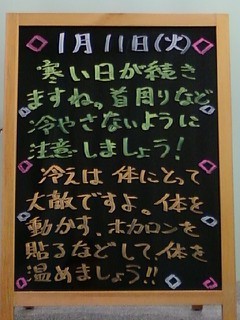 1月11日(火)
寒い日が続き
ますね。首周りなど
冷やさないように
注意しましょう!
冷えは体にとって
大敵ですよ。体を
動かす、ホカロンを
貼るなどして、体を
温めましょう!!